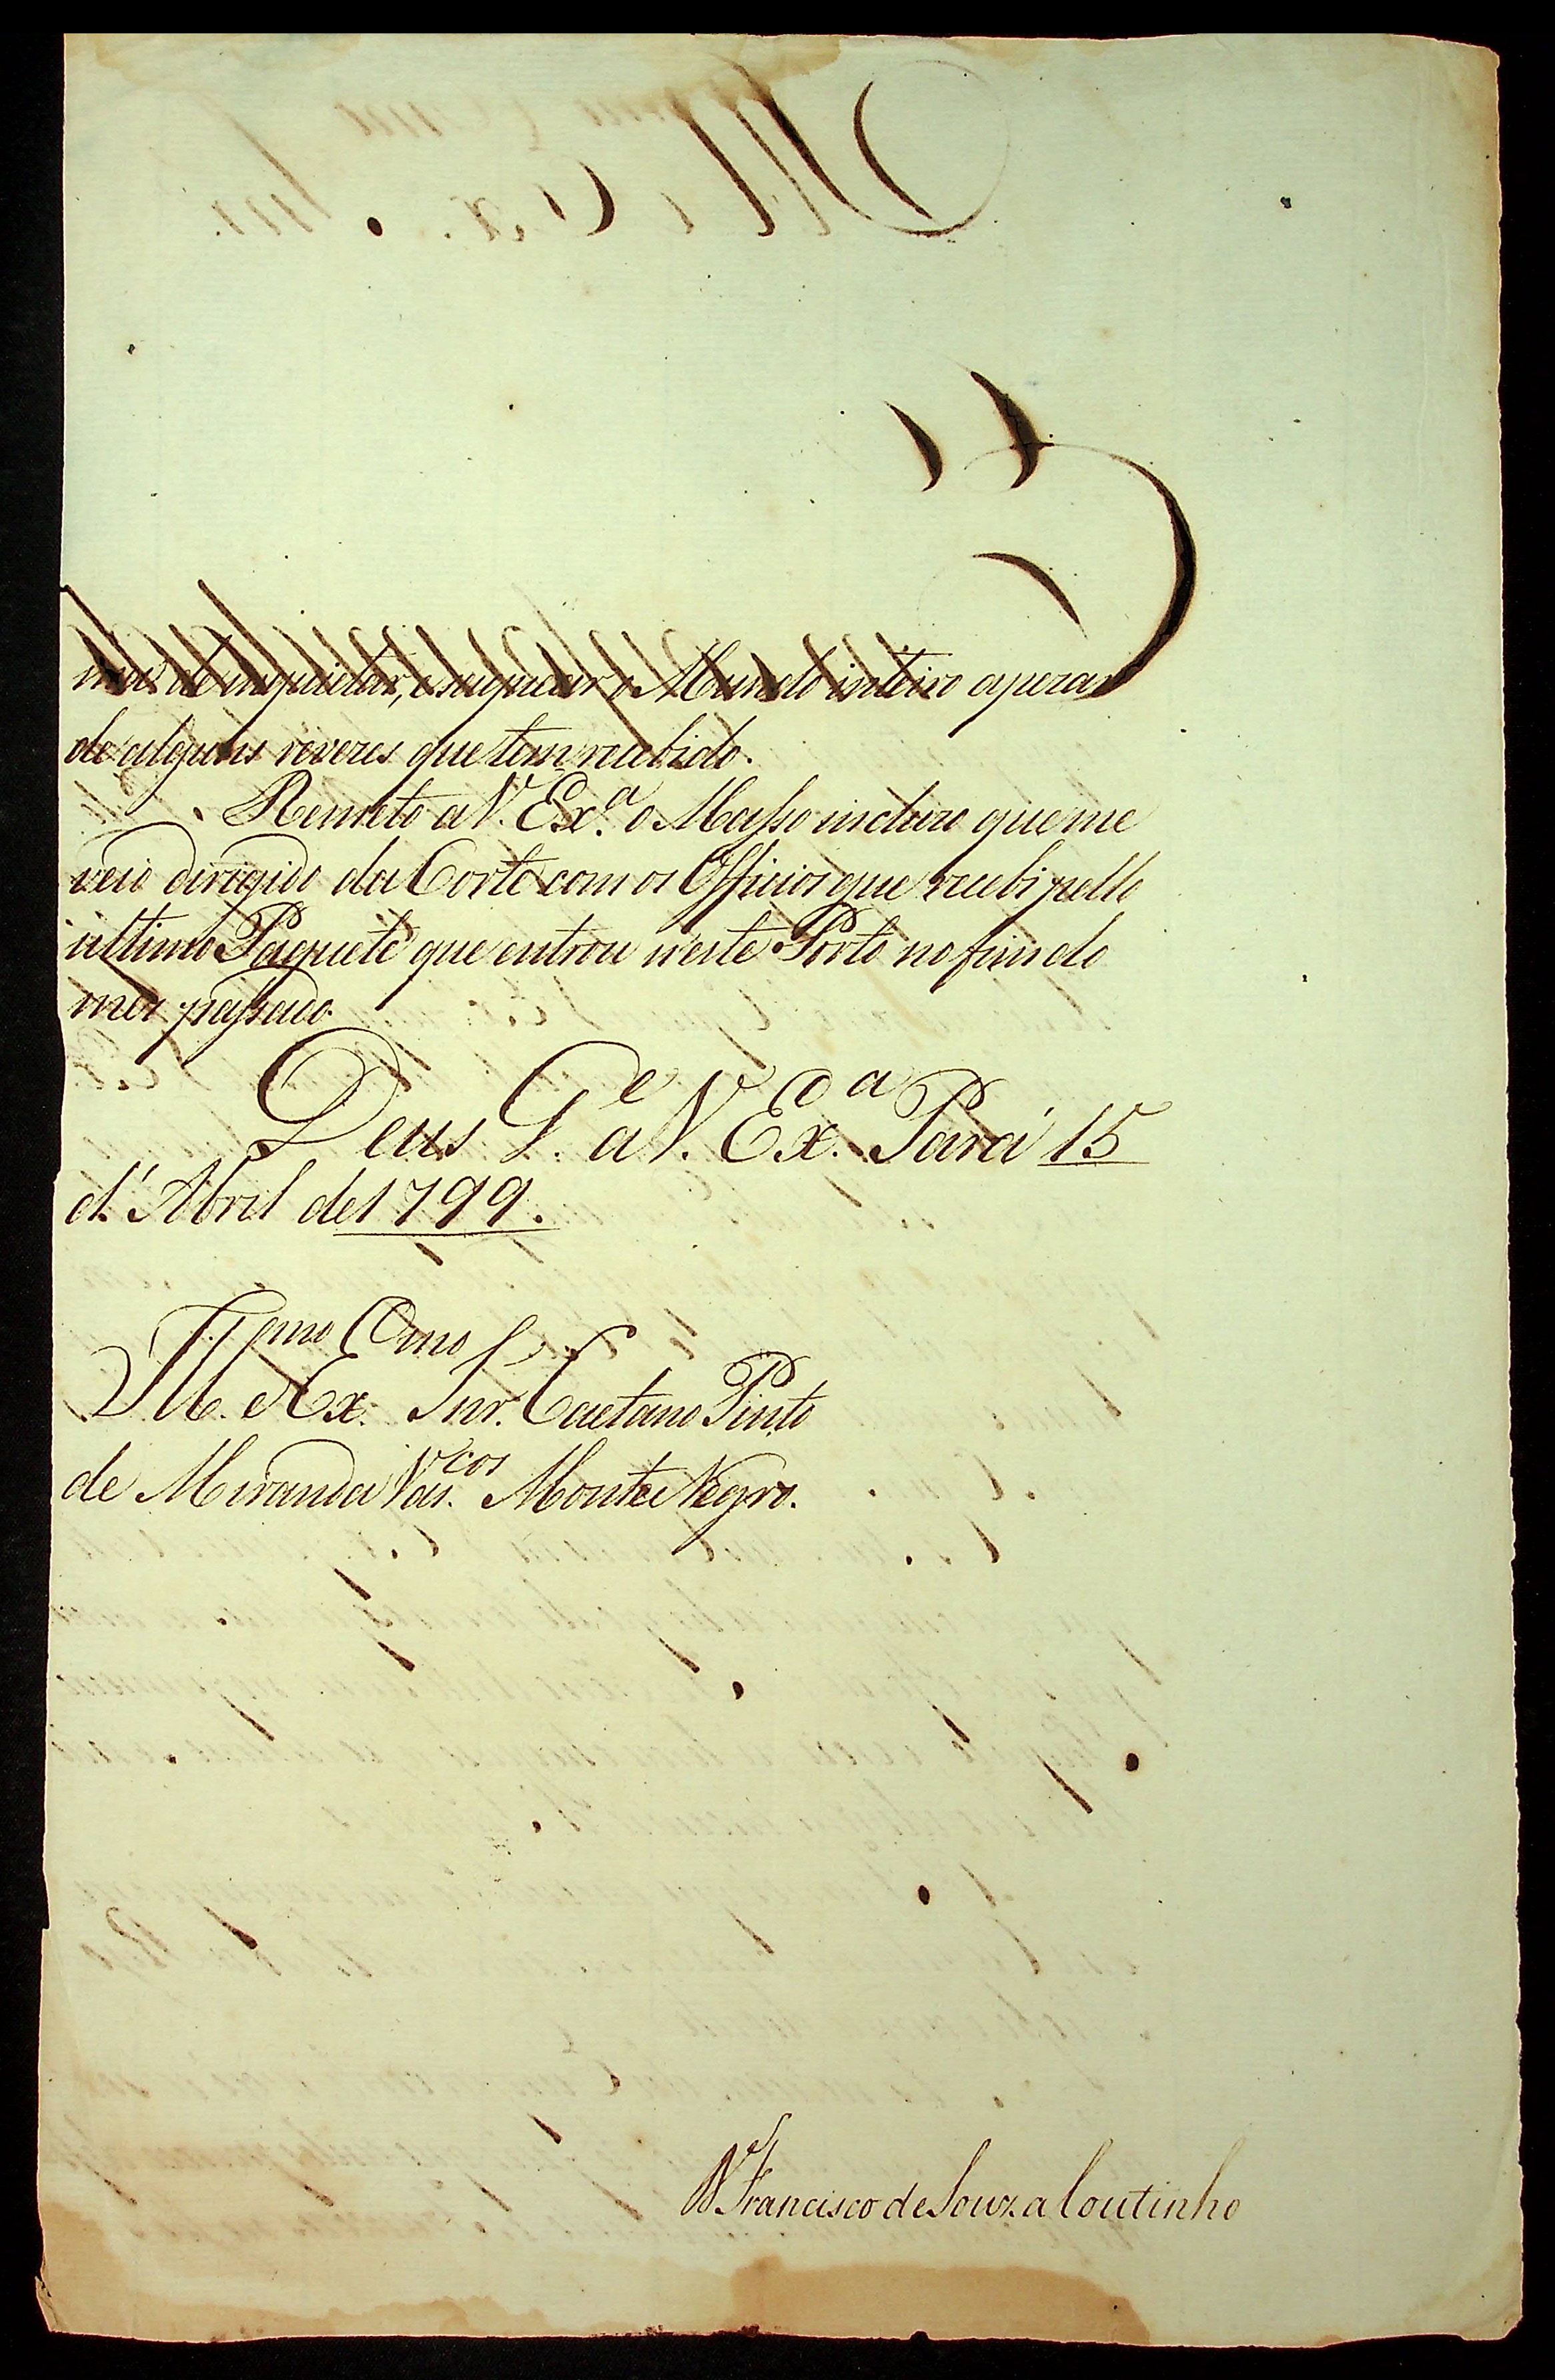 mas de inquietar, e saquear o Mundo inteiro a pezar
de alguns revezes que tem recebido.
Remeto a V. Ex.ª o Masso incluzo que me
veio dirigido da Corte com os Officios que recebi pello
ultimo Paquete que entrou n'este Porto no fim do
mez passado.
Deus G.e a V. Ex.ª Pará 15
d'Abril de 1799.
Ill.mo e Ex.mo Snr. Caetano Pinto
de Miranda Vas.cos Monte Negro.
D. Francisco de Souza Coutinho